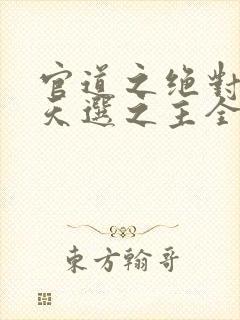 官道之绝對
天選之主全
東方翰哥